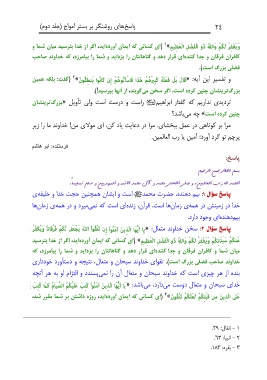 ۲۴ پاسخ‌های روشنگر بر بستر امواج (جلد دوم)
وَيَغْفِرْ لَكُمْ وَاللهُ ذُو الْفَضْلِ الْعَظِيمِ﴾۱ (ای کسانی که ایمان آورده‌اید، اگر از خدا بترسید میان شما و
کافران فرقان و جدا کننده‌ای قرار دهد و گناهانتان را بزداید و شما را بیامرزد، که خداوند صاحب
فضلی بزرگ است).
و تفسیر این آیه: ﴿قَالَ بَلْ فَعَلَهُ كَبِيرُهُمْ هَذَا فَاسْأَلُوهُمْ إِنْ كَانُوا يَنْطِقُونَ﴾۲ (گفت: بلکه همین
بزرگ‌ترینشان چنین کرده است، اگر سخن می‌گویند از آنها بپرسید!).
تردیدی نداریم که گفتار ابراهیم راست و درست است ولی تأویل «بزرگ‌ترینشان
چنین کرده است» چه می‌باشد؟
مرا بر کوتاهی در عمل ببخشای. مرا در دعایت یاد کن، ای مولای من! خداوند ما را زیر
پرچم تو گرد آورد؛ آمین یا رب العالمین.
فرستنده: ابو هاشم
پاسخ:
بسم الله الرحمن الرحیم
الحمد لله رب العالمین، و صلی الله علی محمد و آل محمد الأئمة و المهدیین و سلم تسلیماً.
پاسخ سؤال ۱: بیم دهنده، حضرت محمد است و ایشان همچنین حجت خدا و خلیفه‌ی
خدا در زمینش در همه‌ی زمان‌ها است. قرآن، زنده‌ای است که نمی‌میرد و در همه‌ی زمان‌ها
بیم‌دهنده‌ای وجود دارد.
پاسخ سؤال ۲: سخن خداوند متعال: ﴿يا أَيُّهَا الَّذِينَ آمَنُوا إِنْ تَتَّقُوا اللهَ يَجْعَلْ لَكُمْ فُرْقَانًا وَيُكَفِّرْ
عَنْكُمْ سَيِّئَاتِكُمْ وَيَغْفِرْ لَكُمْ وَاللهُ ذُو الْفَضْلِ الْعَظِيمِ﴾ (ای کسانی که ایمان آورده‌اید، اگر از خدا بترسید
میان شما و کافران فرقان و جدا کننده‌ای قرار دهد و گناهانتان را بزداید و شما را بیامرزد، که
خداوند صاحب فضلی بزرگ است). تقوای خداوند سبحان و متعال، نتیجه و دستاورد خودداری
بنده از هر چیزی است که خداوند سبحان و متعال آن را نمی‌پسندد و التزام او به هر آنچه
خدای سبحان و متعال دوست می‌دارد، می‌باشد: ﴿يَا أَيُّهَا الَّذِينَ آمَنُوا كُتِبَ عَلَيْكُمُ الصِّيَامُ كَمَا كُتِبَ
عَلَى الَّذِينَ مِنْ قَبْلِكُمْ لَعَلَّكُمْ تَتَّقُونَ﴾۳ (ای کسانی که ایمان آورده‌اید، روزه داشتن بر شما مقرر شد،
۱ - انفال: ۲۹.
۲ - انبیا: ۶۳.
۳ - بقره: ۱۸۳.